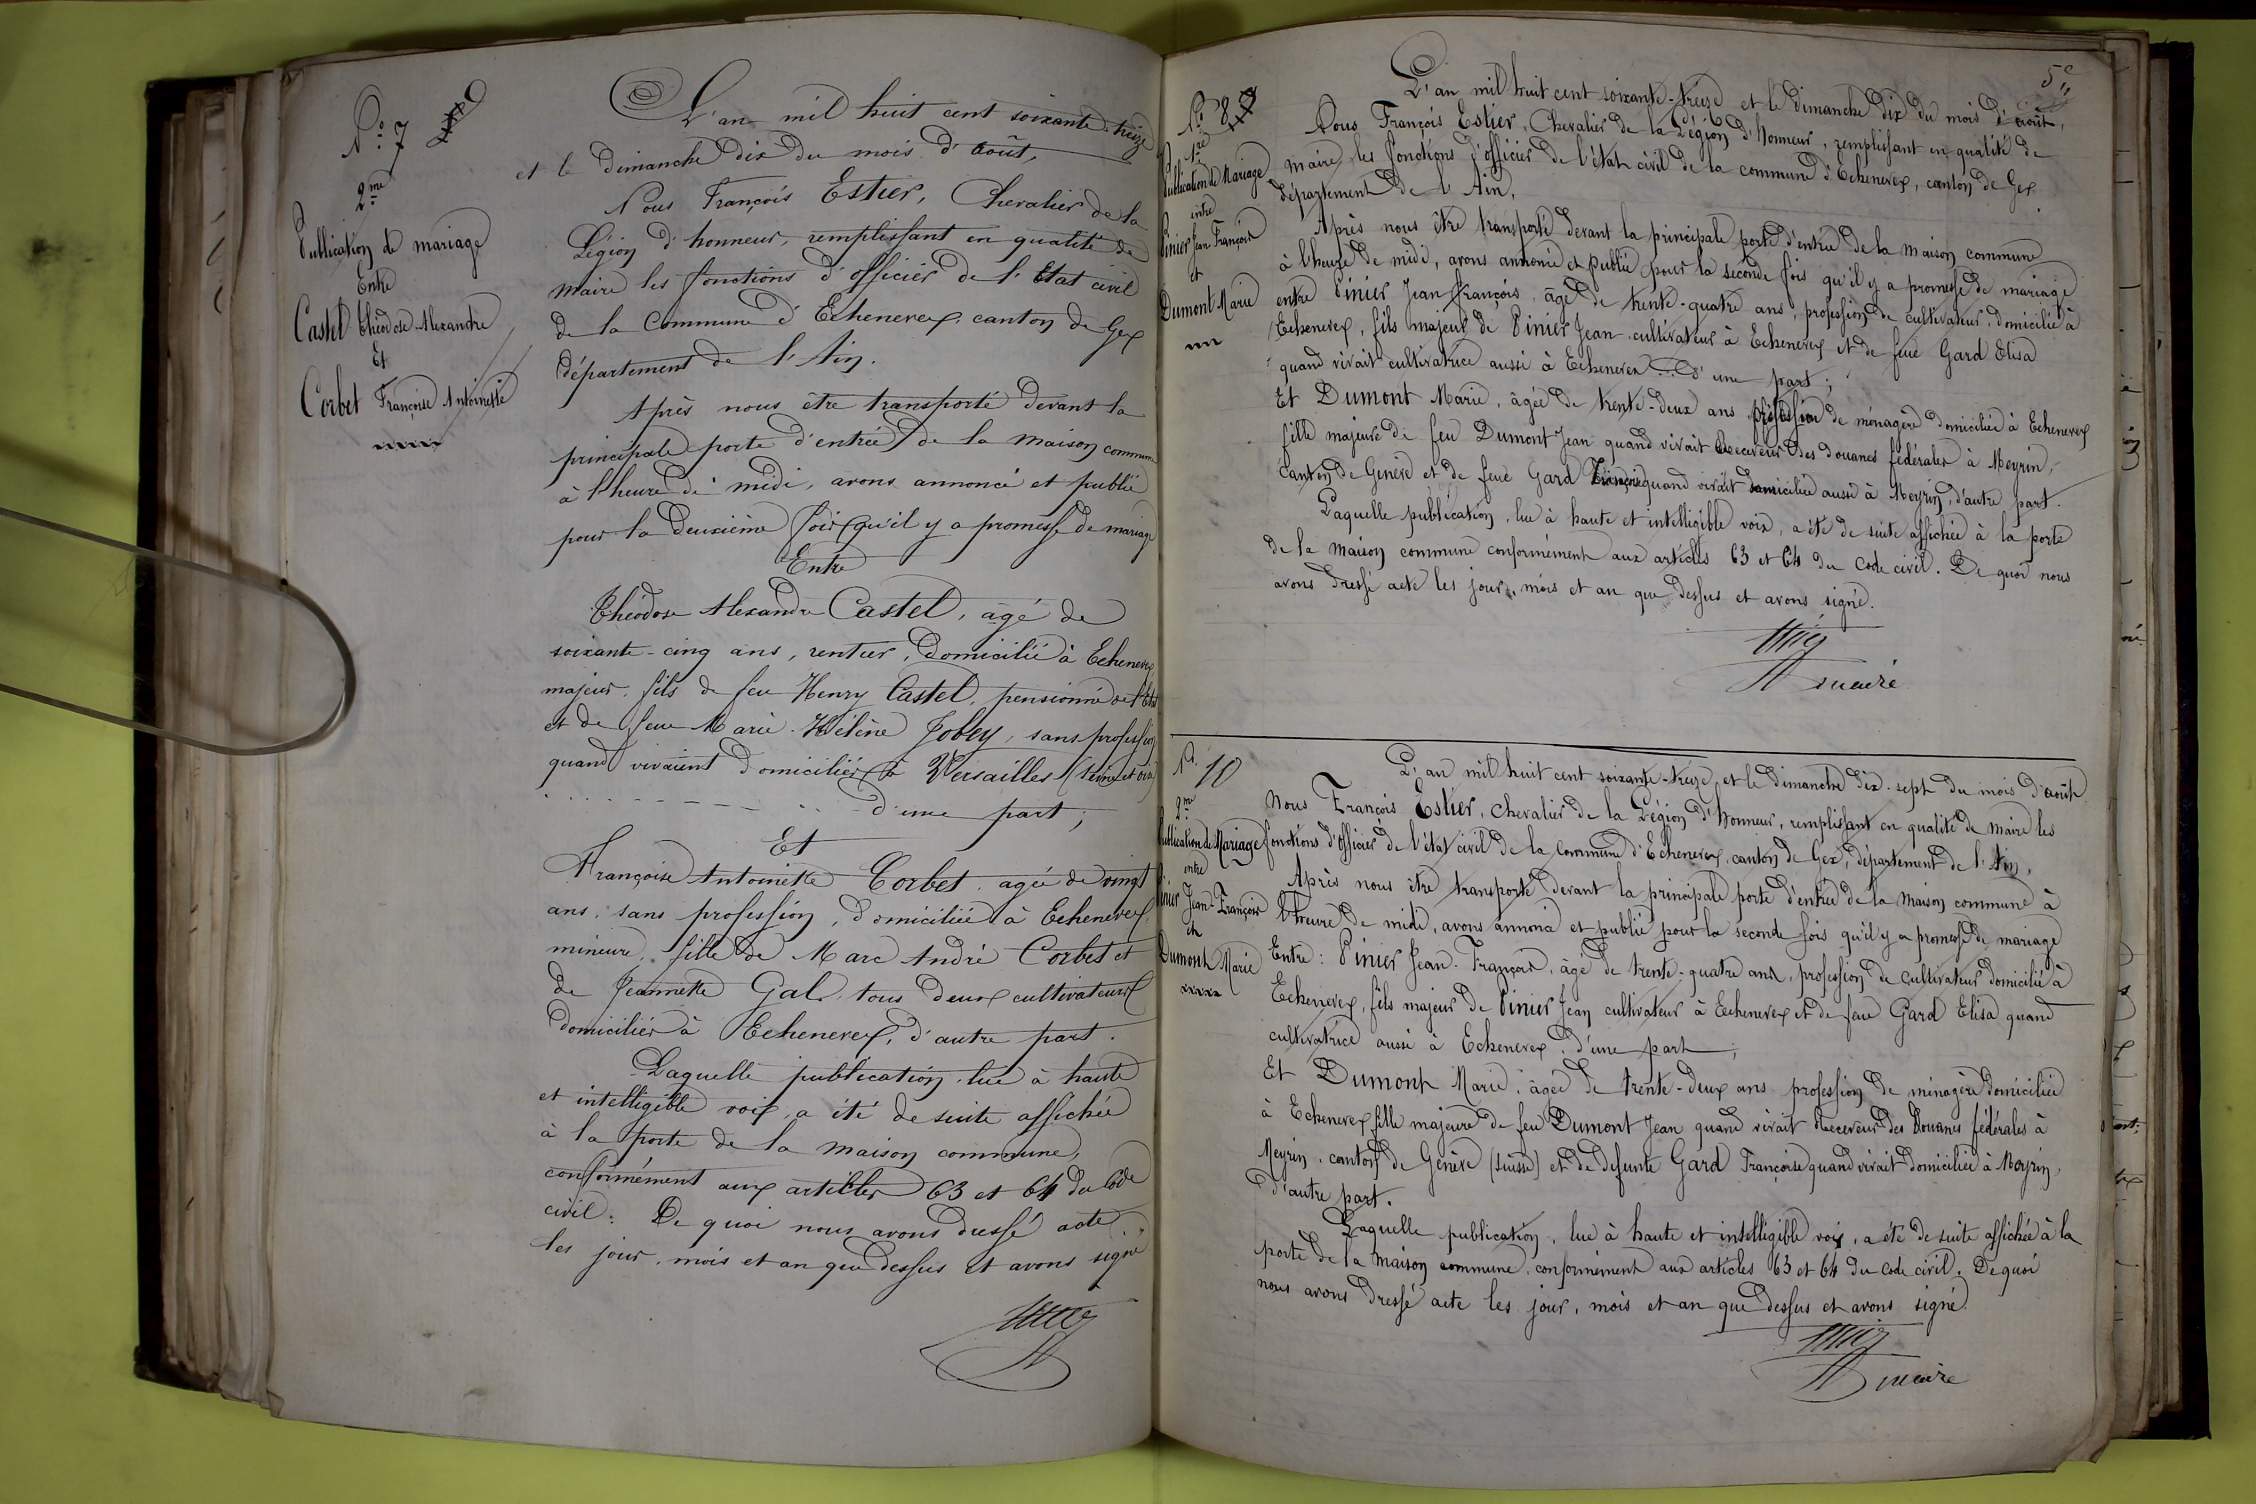 N° 7
2me
Publication de mariage
Entre
Castel Théodose Alexandre
Et
Corbet Françoise Antoinette
L'an mil huit cent soixante-treize
et le Dimanche dix du mois d'Août,
Nous François Estier, Chevalier de la
Légion d'honneur, remplissant en qualité de
maire les fonctions d'officier de l'Etat civil
de la Commune d'Echenevex, canton de Gex
département de l'Ain.
Après nous être transporté devant la
principale porte d'entrée de la maison commune
à l'heure de midi, avons annoncé et publié
pour la deuxième fois qu'il y a promesse de mariage
Entre
Théodose Alexandre Castel, agé de
soixante-cinq ans, rentier, domicilié à Echenevex
majeur, fils de feu Henry Castel, pensionné de l'Etat
et de feue Marie Hélène Jobey, sans profession
quand vivaient domiciliés à Versailles (Seine et Oise)
d'une part;
Et
Françoise Antoinette Corbet, agée de vingt
ans, sans profession, domiciliée à Echenevex,
mineure, fille de Marc André Corbet et
de Jeannette Gal, tous deux cultivateurs
domiciliés à Echenevex, d'autre part.
Laquelle publication, lue à haute
et intelligible voix, a été de suite affichée
à la porte de la maison commune,
conformément aux articles 63 et 64 du Code
civil: De quoi nous avons dressé acte
les jour, mois et an que dessus et avons signé
5e
N° 8
1re
Publication de Mariage
entre
Pinier Jean François
et
Dumont Marie
L'an mil huit cent soixante-treize et le dimanche dix du mois d'août,
Nous François Estier, Chevalier de la Légion d'honneur, remplissant en qualité de
maire les fonctions d'officier de l'état civil de la commune d'Echenevex, canton de Gex
département de l'Ain,
Après nous être transporté devant la principale porte d'entrée de la maison commune
à l'heure de midi, avons annoncé et publié pour la seconde fois qu'il y a promesse de mariage
entre Pinier Jean François, âgé de trente-quatre ans, profession de cultivateur, domicilié à
Echenevex, fils majeur de Pinier Jean, cultivateur à Echenevex et de feue Gard Elisa
quand vivait cultivatrice aussi à Echenevex d'une part;
Et Dumont Marie, âgée de trente-deux ans profession de ménagère domiciliée à Echenevex
fille majeure de feu Dumont Jean quand vivait Receveur des douanes fédérales à Meyrin,
Canton de Genève et de feue Gard Françoise quand vivait domiciliée aussi à Meyrin, d'autre part.
Laquelle publication, lue à haute et intelligible voix, a été de suite affichée à la porte
de la maison commune conformément aux articles 63 et 64 du Code civil. De quoi nous
avons dressé acte les jour, mois et an que dessus et avons signé.
maire
N° 10
2me
Publication de Mariage
entre
Pinier Jean-François
et
Dumont Marie
L'an mil huit cent soixante-treize, et le dimanche dix-sept du mois d'août
Nous François Estier, Chevalier de la Légion d'honneur, remplissant en qualité de maire les
fonctions d'officier de l'état civil de la Commune d'Echenevex, canton de Gex, département de l'Ain,
Après nous être transporté devant la principale porte d'entrée de la maison commune à
l'heure de midi, avons annoncé et publié pour la seconde fois qu'il y a promesse de mariage
Entre: Pinier Jean-François, âgé de trente-quatre ans, profession de cultivateur domicilié à
Echenevex, fils majeur de Pinier Jean cultivateur à Echenevex et de feue Gard Elisa quand
cultivatrice aussi à Echenevex, d'une part;
Et Dumont Marie, âgée de trente-deux ans profession de ménagère domiciliée
à Echenevex fille majeure de feu Dumont Jean quand vivait Receveur des Douanes fédérales à
Meyrin, canton de Genève (Suisse) et de defunte Gard Françoise quand vivait domiciliée à Meyrin,
d'autre part.
Laquelle publication, lue à haute et intelligible voix, a été de suite affichée à la
porte de la maison commune, conformément aux articles 63 et 64 du Code civil. De quoi
nous avons dressé acte les jour, mois et an que dessus et avons signé.
maire